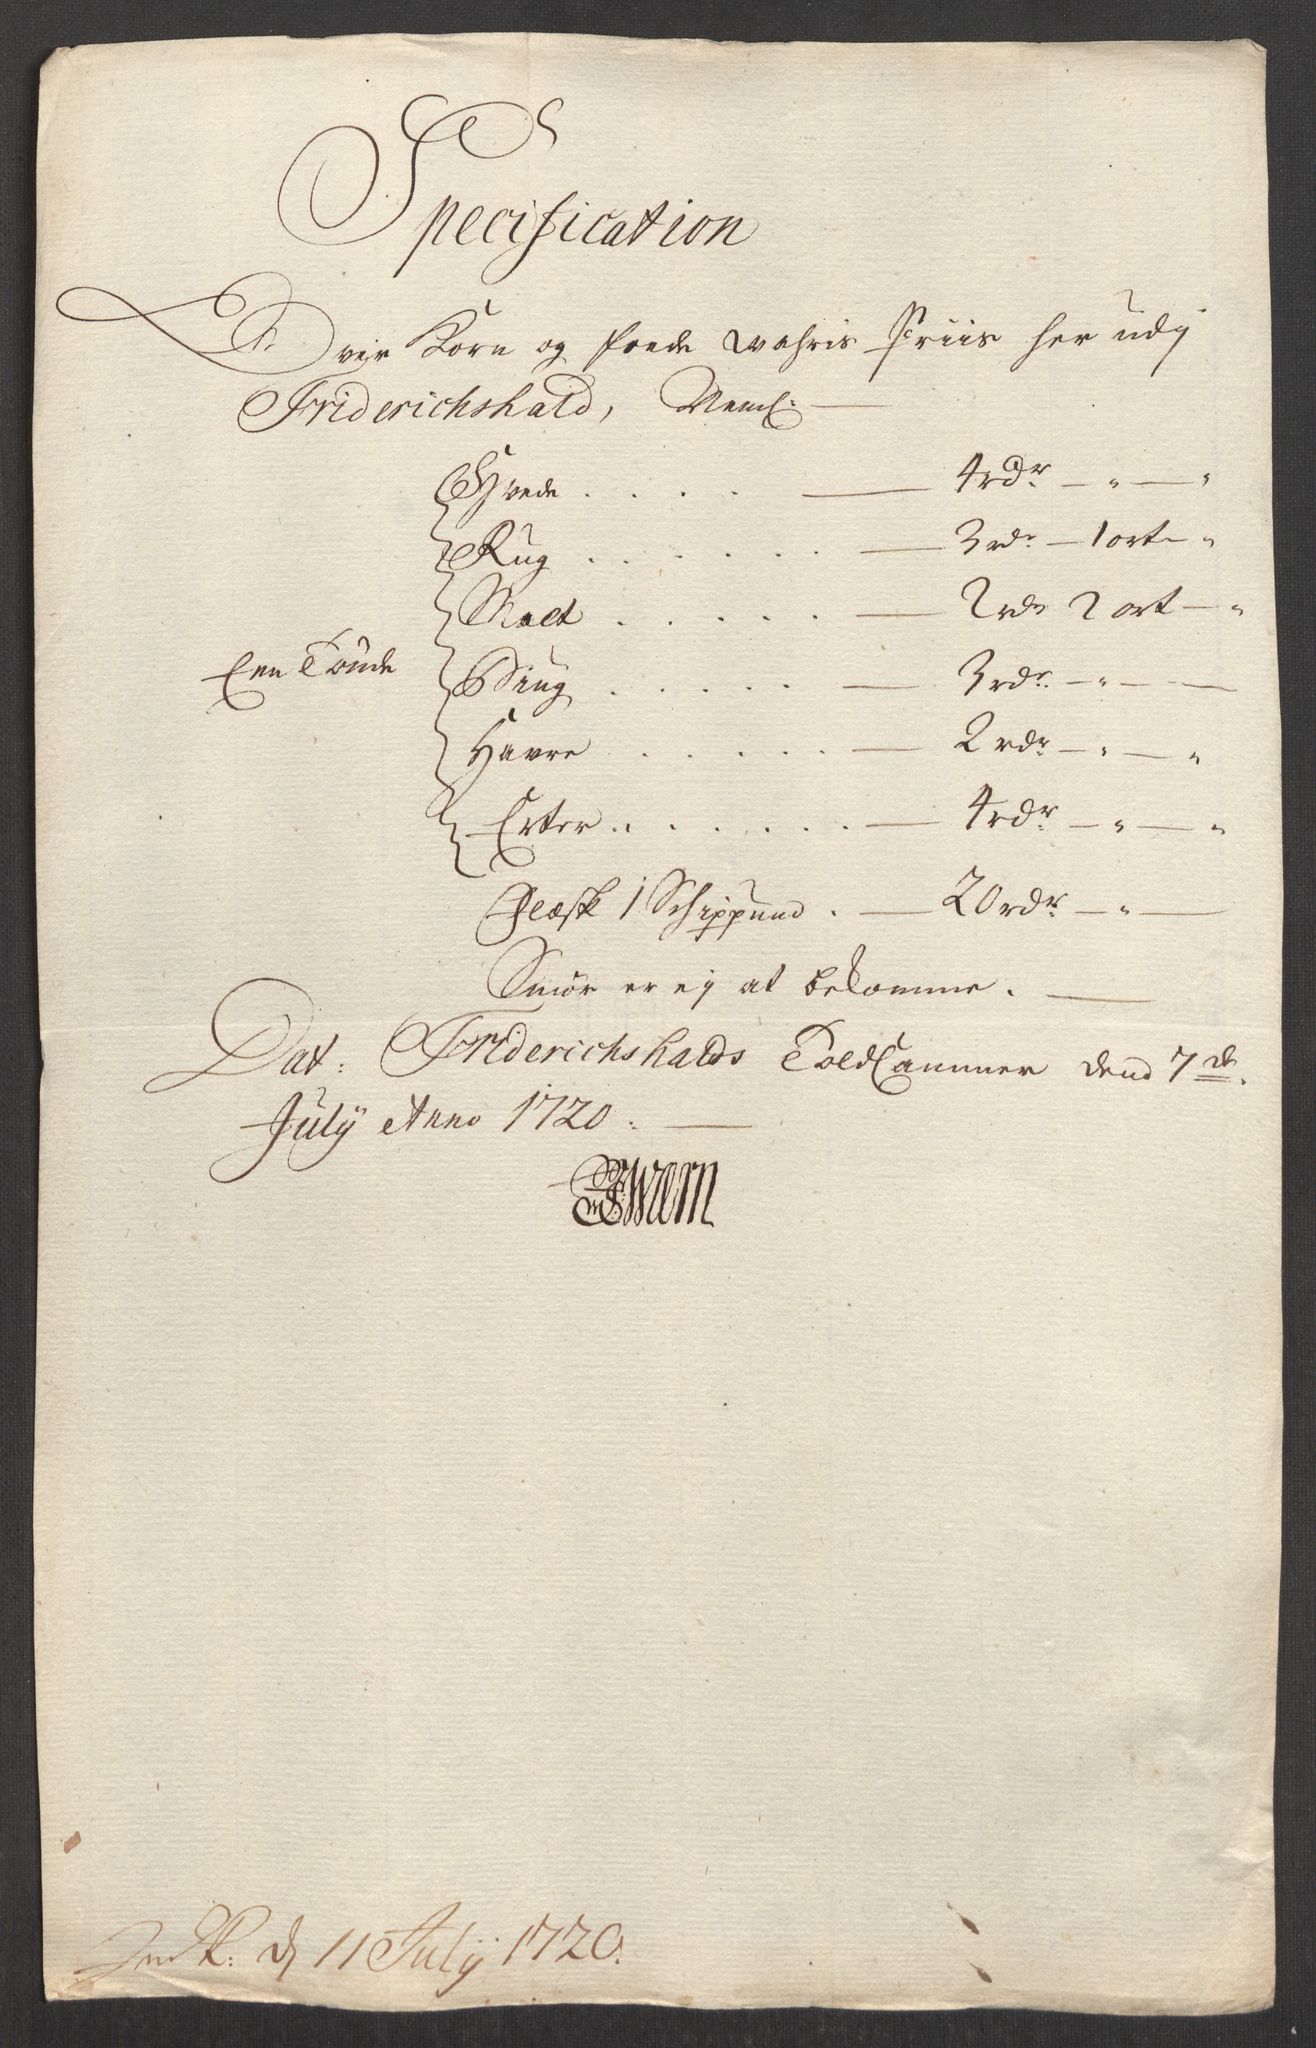 Specification
Over Korn og feede wahris Priis her udj
Friderichshald, Neml:
Hvede . . . . 4 rdr - " - "
Rug . . . . . . 3 rdr - 1 ort - "
Malt . . . . . 2 rdr 2 ort - "
Een Tönde Biug . . . . . 3 rdr - " -
Havre . . . . . 2 rdr - " - "
Erter . . . . . . . 4 rdr - " - "
Flesk 1 Schippund . 20 rdr - "
Smör er ej at bekomme.
Dat: Friderichshalds Toldkammer dend 7de
Julÿ Anno 1720.
Wærn
Indk: d 11 Julÿ 1720.